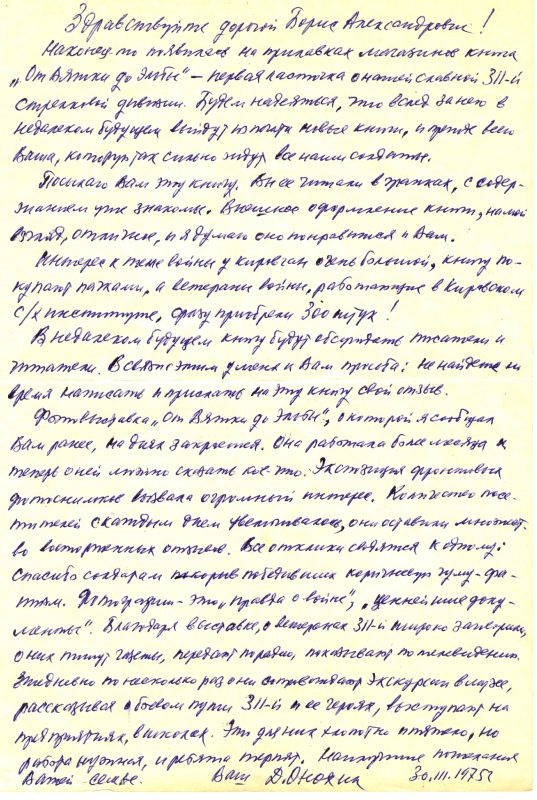 Здравствуйте дорогой Борис Александрович!
Наконец-то появилась на прилавках магазинов книга
„От Вятки до Эльбы" – первая ласточка о нашей славной 311-й
стрелковой дивизии. Будем надеяться, что вслед за нею в
недалеком будущем выйдут из печати новые книги, и прежде всего
Ваша, которую так сильно ждут все наши солдаты.
Посылаю Вам эту книгу. Вы ее читали в гранках, с содер-
жанием уже знакомы. Внешнее оформление книги, на мой
взгляд, отличное, и я думаю оно понравится и Вам.
Интерес к теме войны у кировчан очень большой, книгу по-
купают пачками, а ветераны войны, работающие в Кировском
с/х институте, сразу приобрели 300 штук!
В недалеком будущем книгу будут обсуждать писатели и
читатели. В связи с этим у меня к Вам просьба: не найдете ли
время написать и прислать на эту книгу свой отзыв.
Фотовыставка „От Вятки до Эльбы", о которой я сообщал
Вам ранее, на днях закроется. Она работала более месяца и
теперь о ней можно сказать кое-что. Экспозиция фронтовых
фотоснимков вызвала огромный интерес. Количество посе-
тителей с каждым днем увеличивалось, они оставили множест-
во восторженных отзывов. Все отклики сводятся к одному:
спасибо солдатам победившим коричневую чуму-фа-
шизм. Фотографии – это „правда о войне", „ценнейшие доку-
менты". Благодаря выставке, о ветеранах 311-й широко заговорили,
о них пишут газеты, передают по радио, показывают по телевидению.
Ежедневно по несколько раз они сопровождают экскурсии в музее,
рассказывая о боевом пути 311-й и ее героях, выступают на
предприятиях, в школах. Это для них хлопотно и тяжело, но
работа нужная, и ребята терпят. Наилучшие пожелания
Вашей семье. Ваш Д. Онохин 30.III.1975г